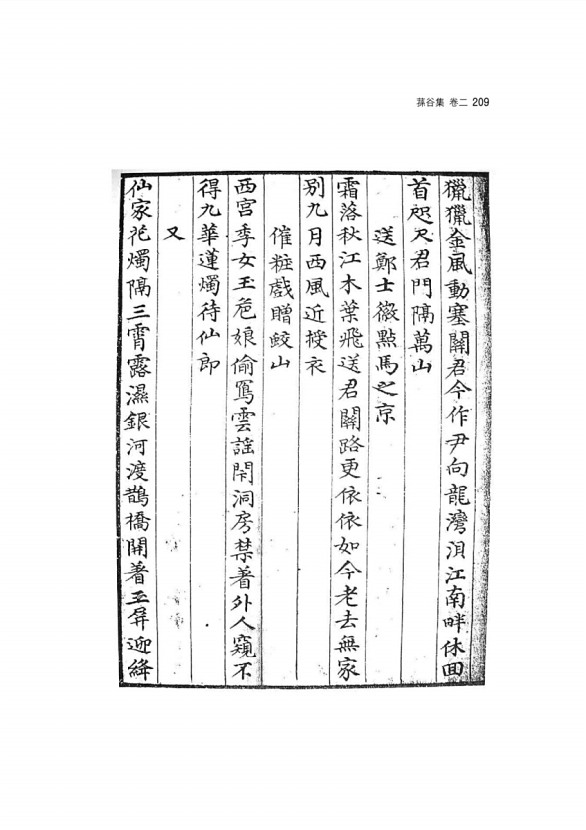 蓀谷集 卷二 209
獵獵金風動塞關君今作尹向龍灣浿江南畔休囬
首咫尺君門隔萬山
送鄭士徵點馬之京
霜落秋江木葉飛送君關路更依依如今老去無家
別九月西風近授衣
催粧戲贈蛟山
西宮季女玉卮娘偷寫雲謠閇洞房禁著外人窺不
得九華蓮燭待仙郎
又
仙家花燭隔三霄露濕銀河渡鵲橋開著玉屛迎絳